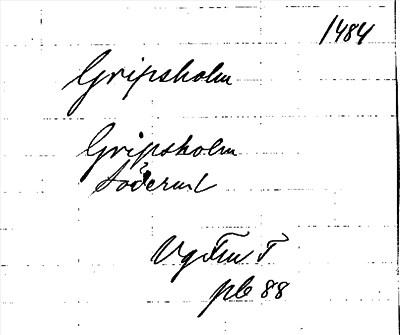 1484
Gripsholm
Gripsholm
Söderml
pb 88